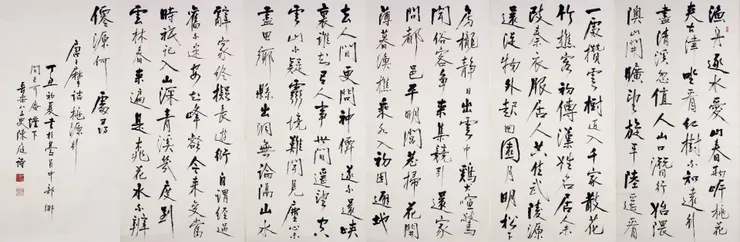 漁舟逐水愛山春兩岸桃花
夾古津坐看紅樹不知遠行
盡清溪忽值人山口潛行始隈
隩山開曠望旋平陸遙看
一處攢雲樹近入千家散花
竹樵客初傳漢姓名居人未
改秦衣服居人共住武陵源
還從物外起田園月明松下
房櫳靜日出雲中雞犬喧驚
聞俗客爭來集競引還家
問都邑平明閭巷掃花開
薄暮漁樵乘水入初因避地
去人間更問神僊遂不還峽
裏誰知有人事世間遙望空
雲山不疑靈境難聞見塵心未
盡思鄉縣出洞無論隔山水
辭家終擬長遊衍自謂經過
舊不迷安知峰壑今來變當
時祇記入山深青溪幾度到
雲林春來遍是桃花水不辨
僊源何處尋
唐摩詰桃源行
丁丑初夏書於